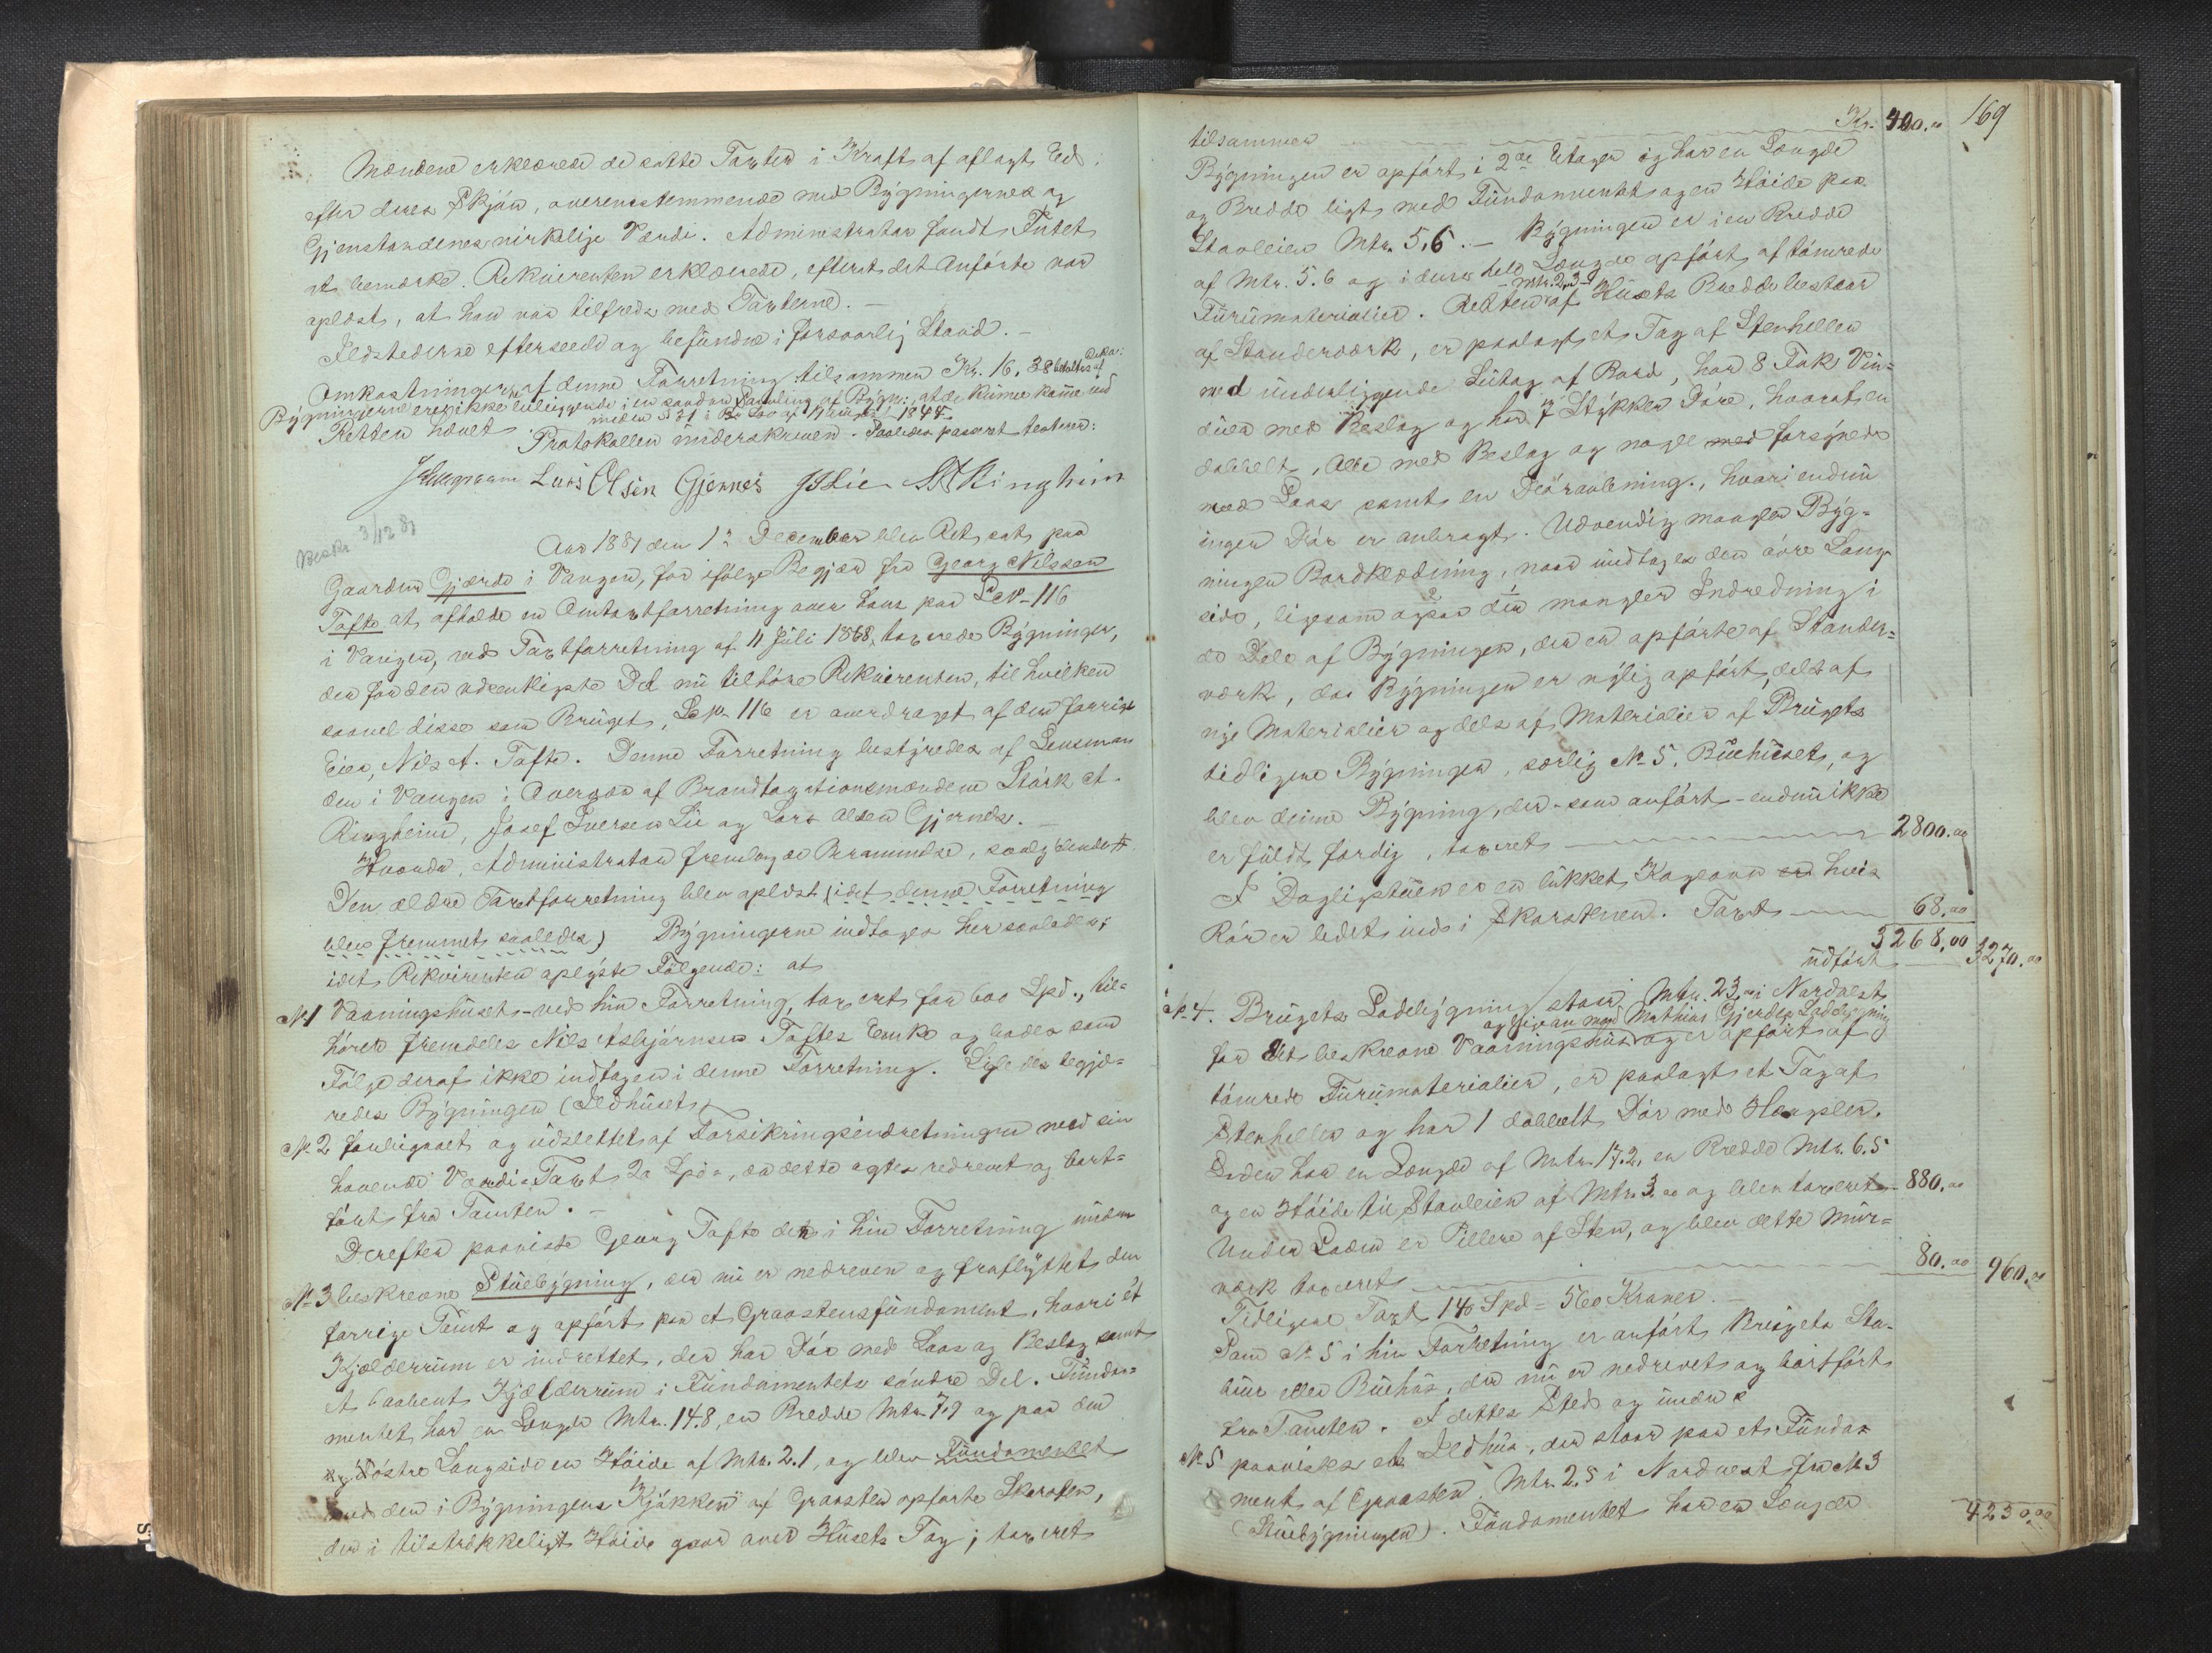 Mændene erklærede de satte Taxter i Kraft af aflagt Ed
efter deres Skjøn, overensstemmende med Bygningernes og
Gjenstandenes virkelige Værdi. Administrator fandt Intet
at bemærke. Rekvirenten erklærede, efterat det Anførte var
oplæst, at han var tilfreds med Taxterne. —
Ildstederne efterseede og befundne i forsvarlig Stand. —
Omkostningerne af denne Forretning: tilsammen Kr. 16,38 betaltes af Rekv:
Bygningerne ere ikke beliggende i en saadan Samling af Bygn: at de kunne komme ind
under § 21 i Br. Lov af 1845
Retten hævet
Protokollen underskreven. Saaledes passeret testerer:
Lars Olsen Gjernes JILie SARingheim
Beskr. 3/12 87
Aar 1887 den 1ste December blev Ret sat paa
Gaarden Gjærde i Vangen, for ifølge Begjær fra Georg Nilssen
Tofte at afholde en Omtaxtforretning over hans paa L No 116
i Vangen, ved Taxtforretning af 11 Juli 1868, taxerede Bygninger,
der for den væsentligste Del nu tilhøre Rekvirenten, til hvilken
saavel disse som Bruget, L No 116 er overdraget af den forrige
Eier, Nils A. Tofte. Denne Forretning bestyredes af Lensman
den i Vangen i Overvær af Brandtaxationsmændene Størk A.
Ringheim, Josef Iversen Lie og Lars Olsen Gjernes. —
Hvorda, Administrator fremlagde Beramindse, saalydende #
Den ældre Taxtforretning blev oplæst (idet denne Forretning
blev fremmet saaledes) Bygningerne indtages her saaledes;
idet Rekvirenten oplyste Følgende: at
No 1 Vaaningshuset – ved hin Forretning, taxeret for 600 Spd., til-
hører fremdeles Nils Asbjørnsen Toftes Enke og bades som
Følge deraf ikke indtagen i denne Forretning. Ligeledes begjæ-
redes Bygningen (Ildhuset)
No 2 forbigaaet og udslettet af Forsikringsindretningen med sin
havende Værdi-Taxt 20 Spd., da dette agtes nedrevet og bort-
ført fra Tomten. –
Derefter paaviste Georg Tofte den i hin Forretning under
No 3 beskrevne Stuebygning, der nu er nedreven og fraflyttet den
forrige Tomt og opført paa et Graastensfundament, hvori ét
Kjælderrum er indrettet, der har Dør med Laas og Beslag samt
et aabent Kjælderrum i Fundamentets søndre Del. Funda-
mentet har en Længde Mtr. 14.8, en Bredde Mtr. 7.9 og paa den
østre Langside en Høide af Mtr. 2.1, og blev Fundamentet
med den i Bygningens Kjøkken af Graasten opførte Skorsten,
der i tilstrækkeligt Høide gaar over Husets Tag; taxeret
169
tilsammen Kr. 400.00
Bygningen er opført i 2de Etager og har en Længde
og Bredde ligt med Fundamentet og en Høide paa
Stavleien Mtr. 5,6. — Bygningen er i en Bredde
af Mtr. 5.6 og i dens hele Længde opført af tømrede
Furumaterialier. Resten – Mtr. 2,3 – af Husets Bredde bestaar
af Standerværk, er paalagt et Tag af Stenheller
med underliggende Sutag af Bord, har 8 Fak Vin-
duer med Beslag og har 7 Stykker Døre, hvoraf en
dobbelt, Alle med Beslag og nogle med forsynede
med Laas samt en Døraabning, hvori endnu
ingen Dør er anbragt. Udvendig mangler Byg-
ningen Bordklædning, naar undtages den øvre Lang-
side, ligesom ogsaa der mangler Indredning i
de Dele af Bygningen, der er opførte af Stander-
værk, da Bygningen er nylig opført, dels af
nye Materialier og dels af Materialier af Brugets
tidligere Bygninger, særlig No 5, Buehuset, og
blev denne Bygning, der – som anført – endnu ikke
er fuldt færdig, taxeret 2800.00
I Dagligstuen er en lukket Kogeovn hvis
Rør er ledet ind i Skorstenen. Taxt 68.00
3268.00
udført 3270.00
No 4. Brugets Ladebygning staar Mtr. 23,00 i Nordvest
for det beskrevne Vaaningshus og lige an mod Mathias Gjerdes Ladebygning
og er opført af
tømrede Furumaterialier, er paalagt et Tag af
Stenheller og har 1 dobbelt Dør med Hængsler.
Laden har en Længde af Mtr. 17.2, en Bredde Mtr. 6.5
og en Høide til Stavleien af Mtr. 3.00 og blev taxeret 880.00
Under Laden er Pillere af Sten, og blev dette Mur-
værk taxeret 80.00 960.00
Tidligere Taxt 140 Spd = 560 Kroner. —
Som No 5 i hin Forretning er anført Brugets Sta-
buur eller Buehus, der nu er nedrevet og bortført
fra Tomten. I dettes Sted og under
No 5 paavistes et Ildhus, der staar paa et Funda-
ment af Graasten Mtr. 2.5 i Nordvest fra No 3
(Stuebygningen). Fundamentet har en Længde
4230.00